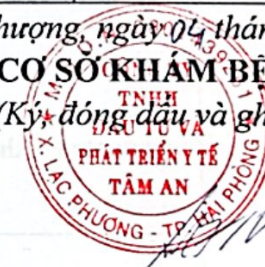 hượng, ngày 04 thán
CƠ SỞ KHÁM BỆ
(Ký, đóng dấu và gh
TNHH
ĐẦU TƯ VÀ
PHÁT TRIỂN Y TẾ
TÂM AN
X. LẠC PHƯỢNG - TP. HẢI PHÒNG